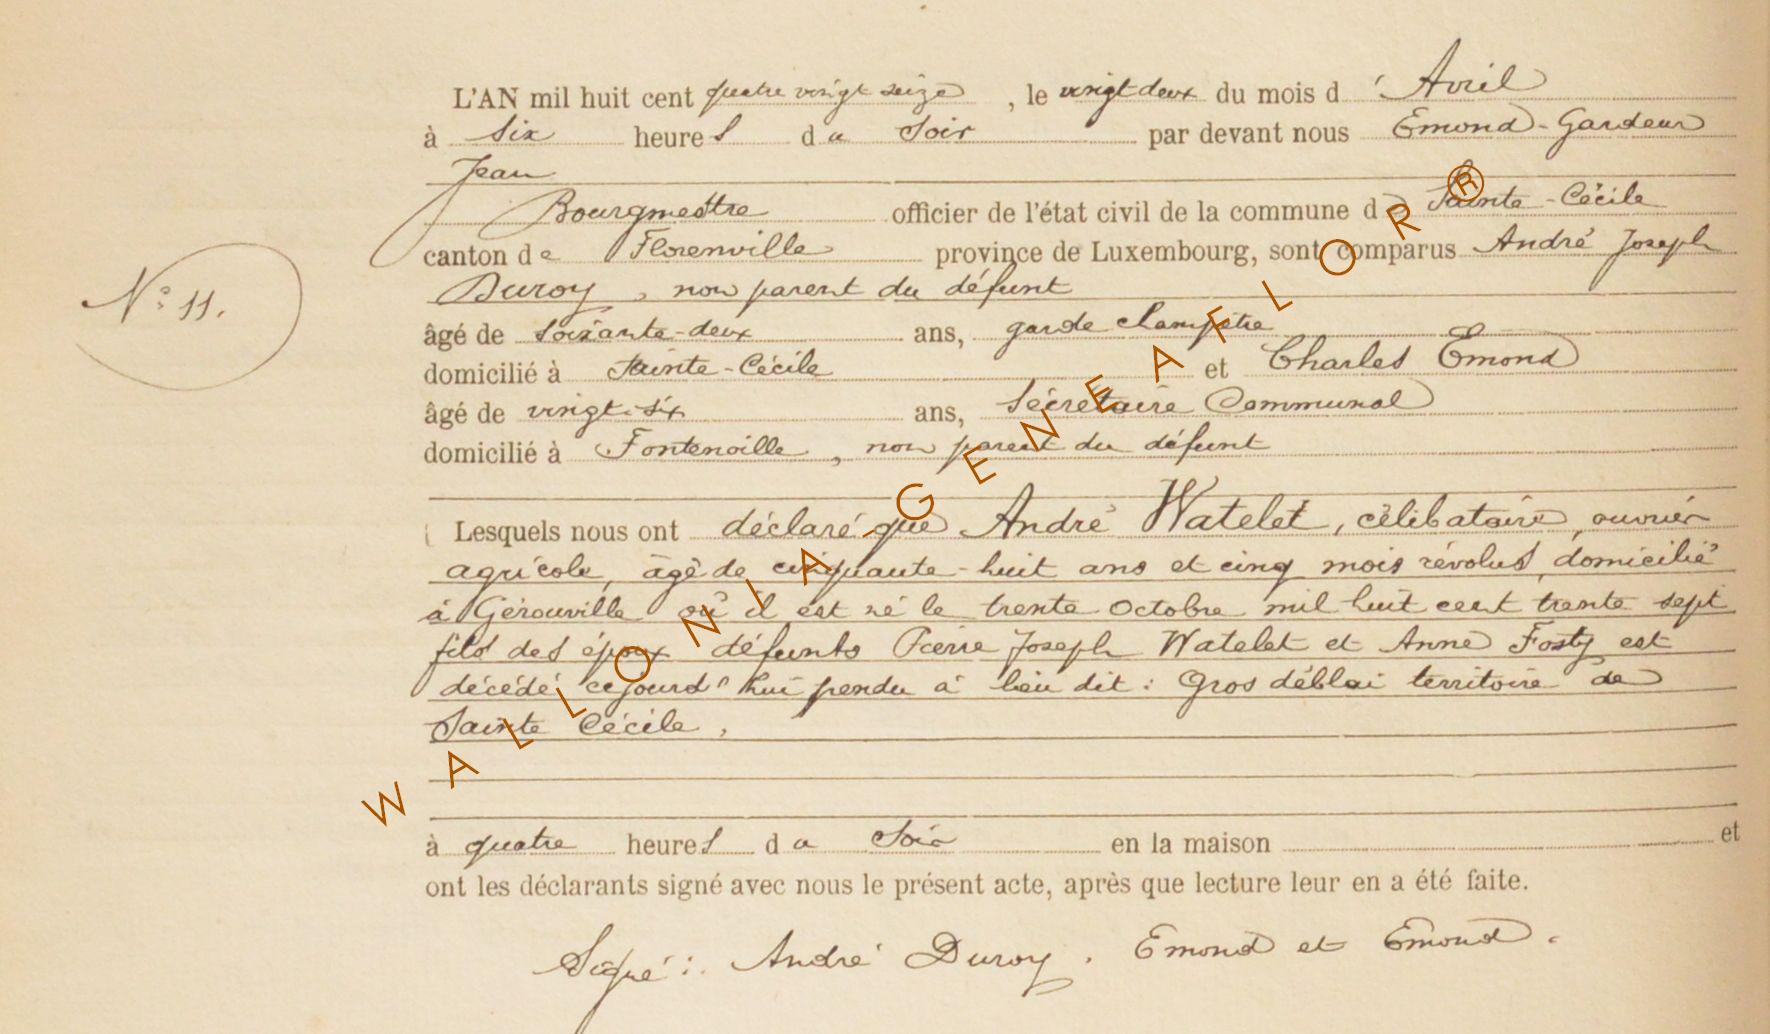 L'AN mil huit cent quatre vingt seize, le vingt deux du mois d'Avril
à six heures du soir par devant nous Emond-Gardeur
Jean
Bourgmestre officier de l'état civil de la commune de Sainte-Cécile
canton de Florenville province de Luxembourg, sont comparus André Joseph
Duroy, non parent du défunt
N° 11.
âgé de soixante-deux ans, garde champêtre
domicilié à Sainte-Cécile et Charles Emond
âgé de vingt-six ans, Secrétaire Communal
domicilié à Fontenoille, non parent du défunt
Lesquels nous ont déclaré que André Watelet, célibataire, ouvrier
agricole, âgé de cinquante-huit ans et cinq mois révolus, domicilié
à Gérouville où il est né le trente Octobre mil huit cent trente sept
fils des époux défunts Pierre Joseph Watelet et Anne Fosty est
décédé cejourd'hui pendu à lieu dit : Gros déblai territoire de
Sainte Cécile,
à quatre heures du soir en la maison et
ont les déclarants signé avec nous le présent acte, après que lecture leur en a été faite.
Signé : André Duroy. Emond et Emond.
WALLONIA-GENEAFLOR®